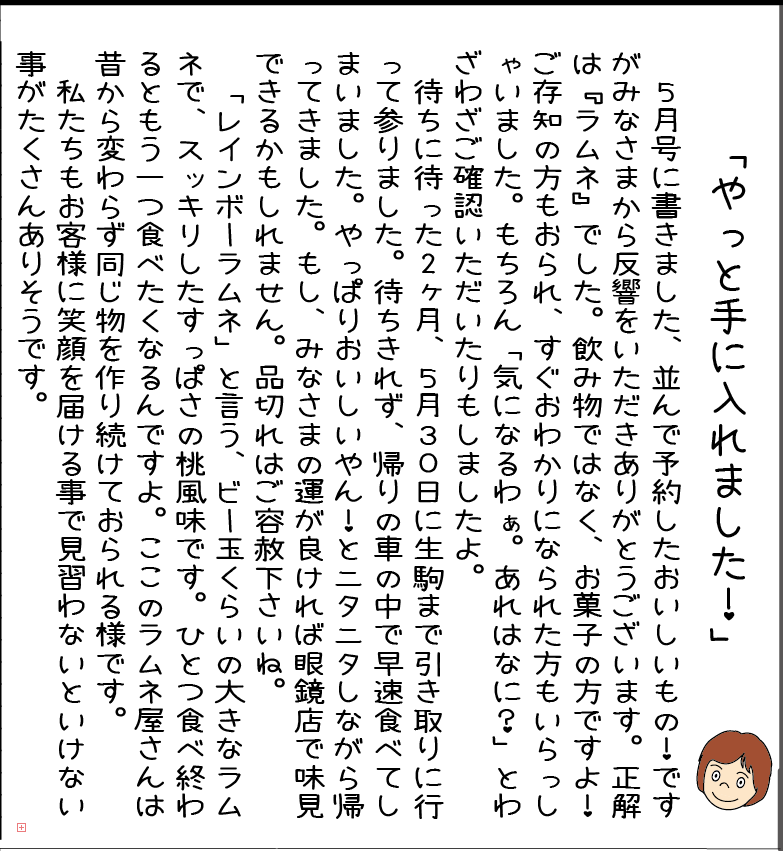 「やっと手に入れました！」
５月号に書きました、並んで予約したおいしいもの！です
がみなさまから反響をいただきありがとうございます。正解
は『ラムネ』でした。飲み物ではなく、お菓子の方ですよ！
ご存知の方もおられ、すぐおわかりになられた方もいらっし
ゃいました。もちろん「気になるわぁ。あれはなに？」とわ
ざわざご確認いただいたりもしましたよ。
待ちに待った２ヶ月、５月３０日に生駒まで引き取りに行
って参りました。待ちきれず、帰りの車の中で早速食べてし
まいました。やっぱりおいしいやん！とニタニタしながら帰
ってきました。もし、みなさまの運が良ければ眼鏡店で味見
できるかもしれません。品切れはご容赦下さいね。
「レインボーラムネ」と言う、ビー玉くらいの大きなラム
ネで、スッキリしたすっぱさの桃風味です。ひとつ食べ終わ
るともう一つ食べたくなるんですよ。ここのラムネ屋さんは
昔から変わらず同じ物を作り続けておられる様です。
私たちもお客様に笑顔を届ける事で見習わないといけない
事がたくさんありそうです。